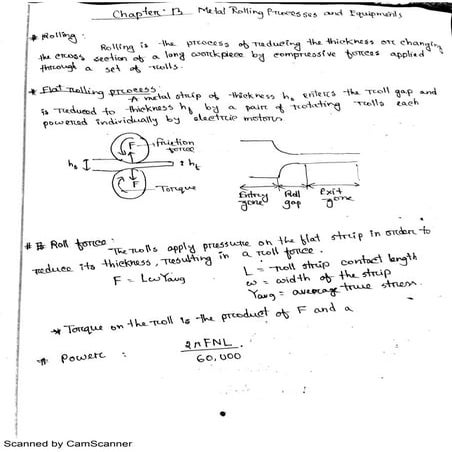 Chapter: 13 Metal Rolling Processes and Equipments
* Rolling:
Rolling is the process of reducing the thickness or changing
the cross section of a long workpiece by compressive forces applied
through a set of rolls.
* Flat rolling process:
A metal strip of thickness h₀ enters the roll gap and
is reduced to thickness hf by a pair of rotating rolls each
powered individually by electric motors.
F friction
force
h₀ hf
F Torque
Entry zone Roll gap Exit zone
# Roll force:
The rolls apply pressure on the flat strip in order to
reduce its thickness, resulting in a roll force.
F = LwYavg
L = roll strip contact length
w = width of the strip
Yavg = average true stress.
* Torque on the roll is the product of F and a
# Power: 2πFNL / 60,000
Scanned by CamScanner